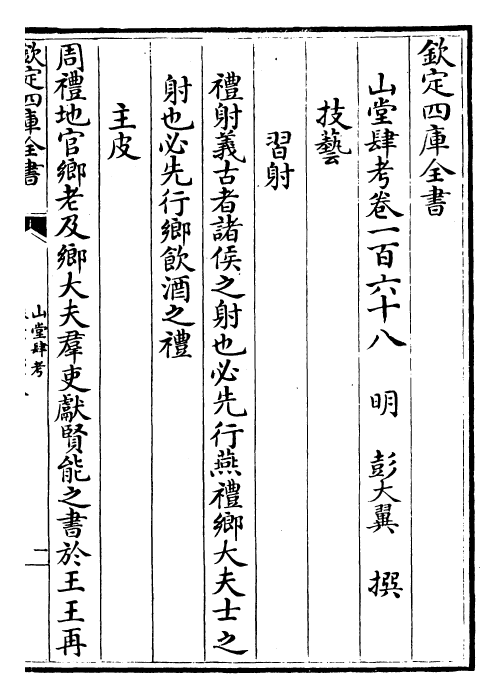 欽定四庫全書
山堂肆考卷一百六十八　明　彭大翼　撰
技藝
習射
禮射義古者諸侯之射也必先行燕禮鄉大夫士之
射也必先行鄉飲酒之禮
主皮
周禮地官鄉老及鄉大夫羣吏獻賢能之書於王王再
欽定四庫全書
山堂肆考